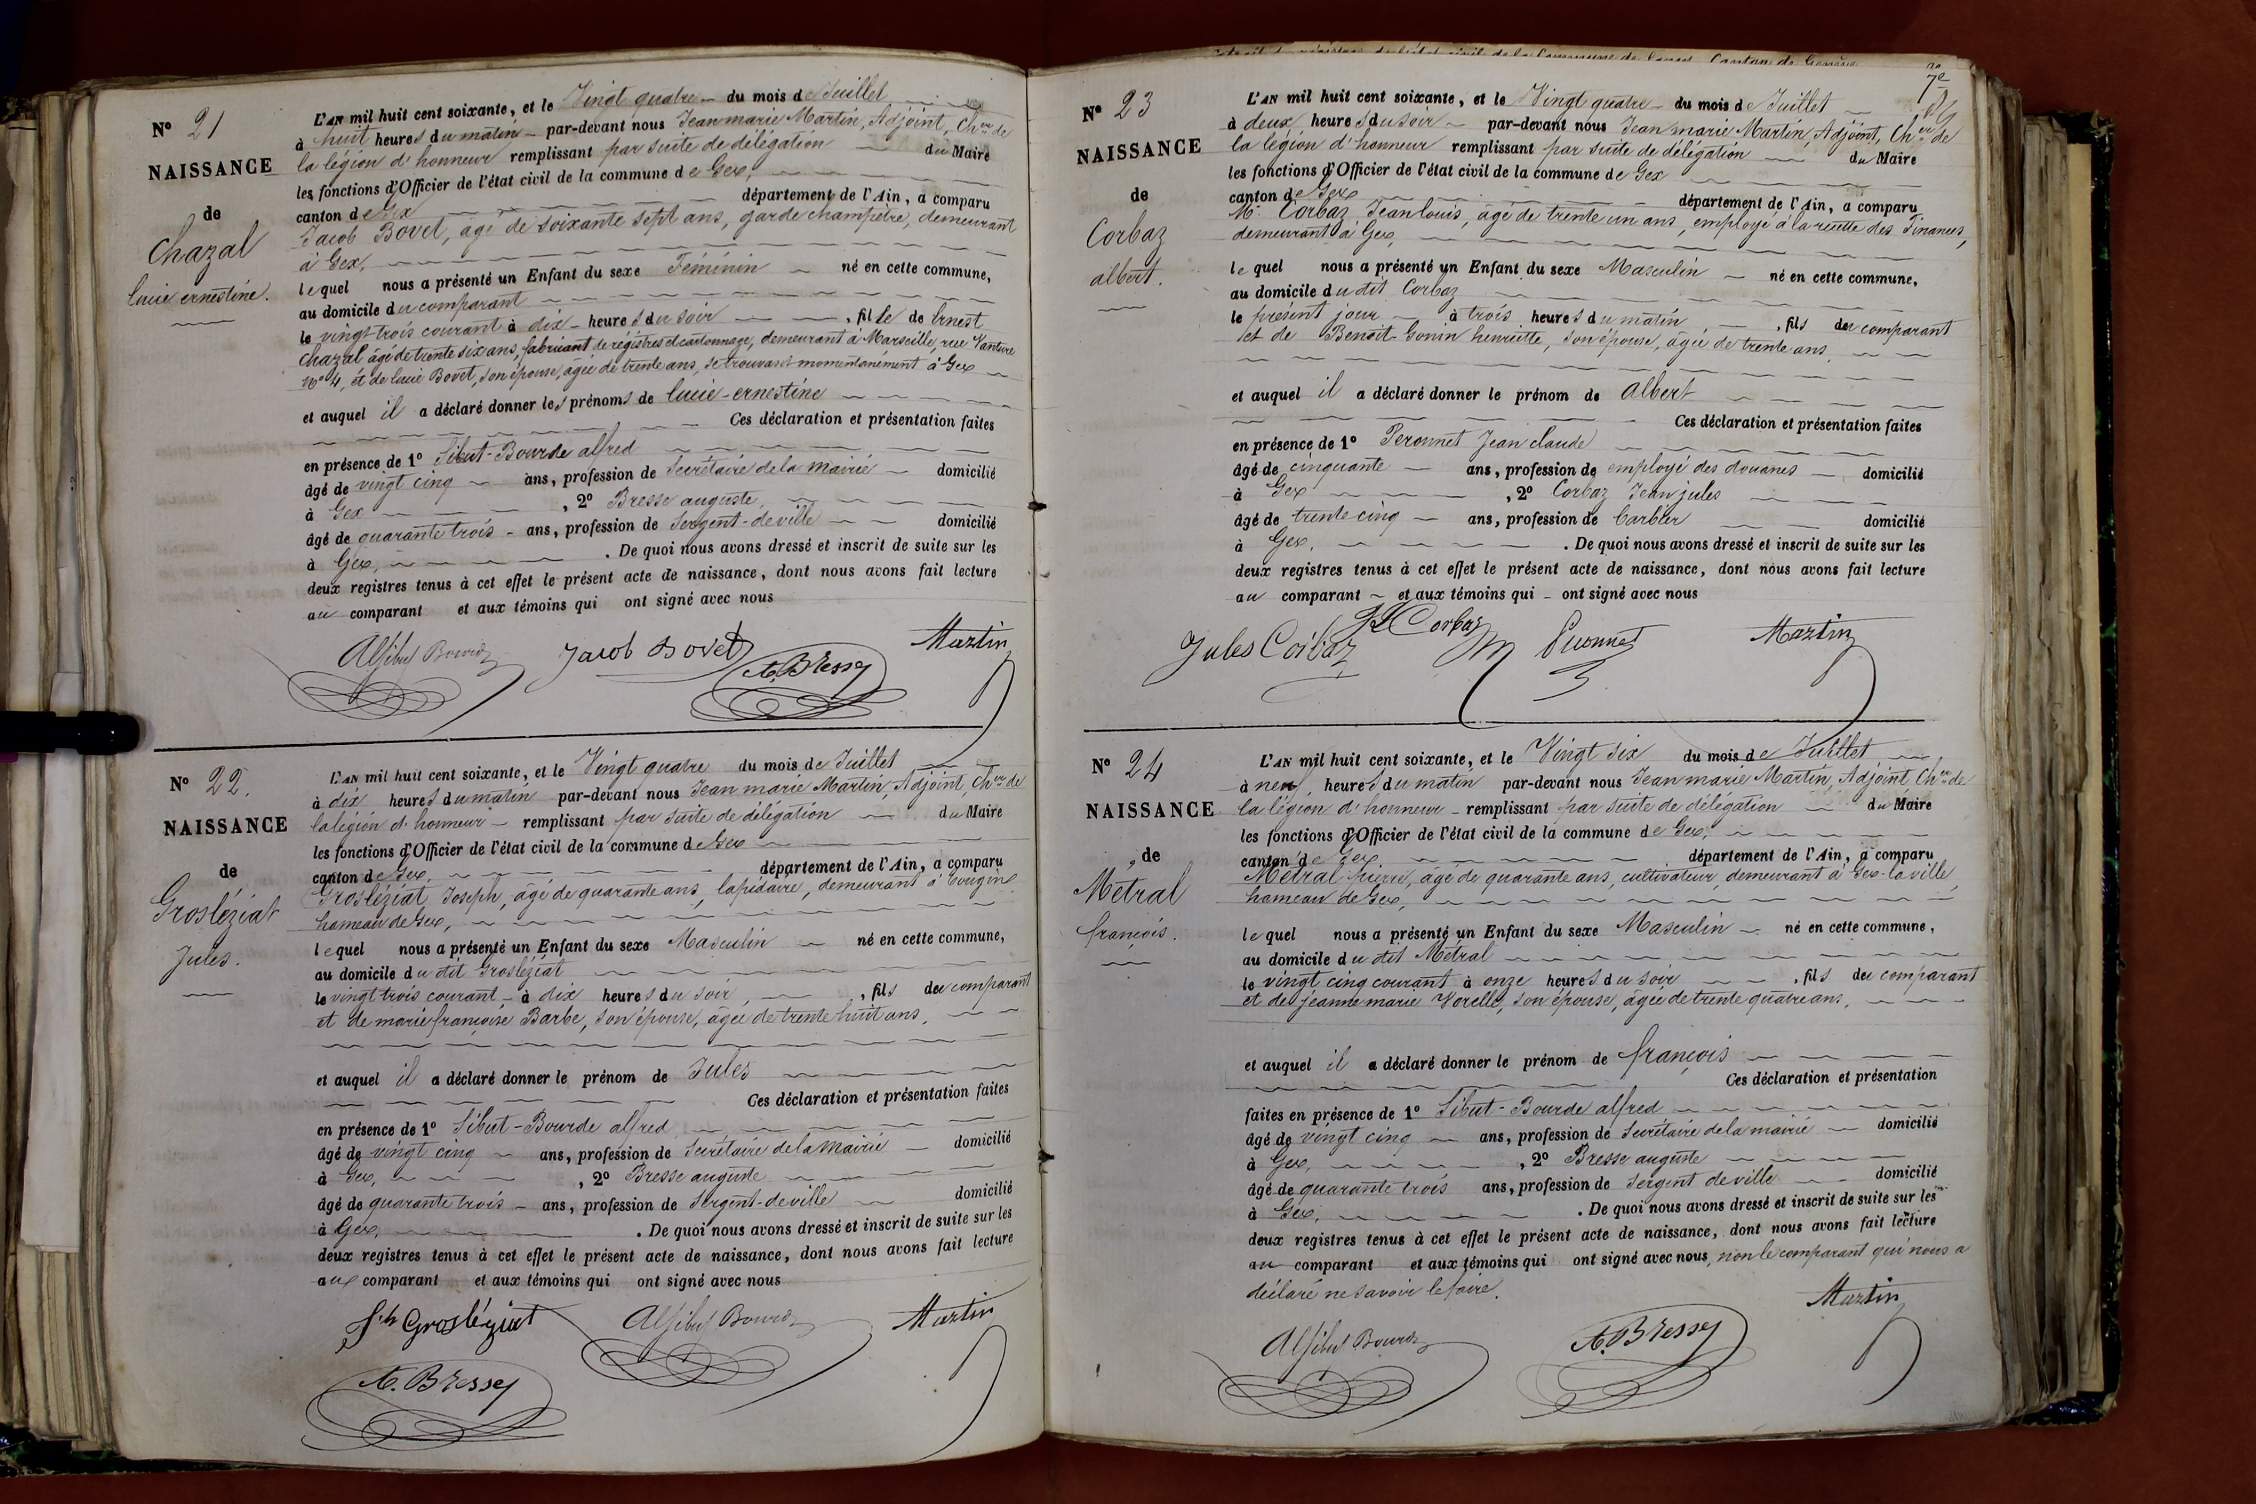 N° 21
NAISSANCE
de
Chazal
lucie ernestine.
L'AN mil huit cent soixante, et le Vingt quatre du mois de Juillet
à huit heures du matin par-devant nous Jean marie Martin, Adjoint, Cher de
la légion d'honneur remplissant par suite de délégation du Maire
les fonctions d'Officier de l'état civil de la commune de Gex,
canton de Gex département de l'Ain, a comparu
Jacob Bovet, agé de soixante sept ans, garde champêtre, demeurant
à Gex,
lequel nous a présenté un Enfant du sexe Féminin né en cette commune,
au domicile du comparant
le vingt-trois courant à dix heures du soir, fille de Ernest
Chazal âgé de trente six ans, fabricant de régistres et cartonnage, demeurant à Marseille, rue Vanture
n° 4, et de lucie Bovet, son épouse, agée de trente ans, se trouvant momentanément à Gex
et auquel il a déclaré donner les prénoms de lucie-ernestine
Ces déclaration et présentation faites
en présence de 1° Sibut-Bourde alfred
âgé de vingt cinq ans, profession de Secrétaire de la mairie domicilié
à Gex, 2° Bresse auguste,
âgé de quarante trois ans, profession de Sergent-de ville domicilié
à Gex, . De quoi nous avons dressé et inscrit de suite sur les
deux registres tenus à cet effet le présent acte de naissance, dont nous avons fait lecture
au comparant et aux témoins qui ont signé avec nous
Jacob Bovet A. Bresse Martin
N° 22.
NAISSANCE
de
Grosléziat
Jules.
L'AN mil huit cent soixante, et le Vingt quatre du mois de Juillet
à dix heures du matin par-devant nous Jean marie Martin, Adjoint, Cher de
la légion d'honneur remplissant par suite de délégation du Maire
les fonctions d'Officier de l'état civil de la commune de Gex
canton de Gex, département de l'Ain, a comparu
Grosléziat, Joseph, agé de quarante ans, lapidaire, demeurant à Tougin
hameau de Gex,
lequel nous a présenté un Enfant du sexe Masculin né en cette commune,
au domicile du dit Grosléziat
le vingt trois courant à dix heures du soir, fils du comparant
et de marie françoise Barbe, son épouse, agée de trente huit ans,
et auquel il a déclaré donner le prénom de Jules
Ces déclaration et présentation faites
en présence de 1° Sibut-Bourde alfred
âgé de vingt cinq ans, profession de Secrétaire de la Mairie domicilié
à Gex, 2° Bresse auguste
âgé de quarante trois ans, profession de Sergent-de ville domicilié
à Gex, . De quoi nous avons dressé et inscrit de suite sur les
deux registres tenus à cet effet le présent acte de naissance, dont nous avons fait lecture
aux comparant et aux témoins qui ont signé avec nous
Jh Grosléziat Martin
A. Bresse
N° 23
NAISSANCE
de
Corbaz
albert.
L'AN mil huit cent soixante, et le Vingt quatre du mois de Juillet
à deux heures du soir par-devant nous Jean marie Martin, Adjoint, Cher de
la légion d'honneur remplissant par suite de délégation du Maire
les fonctions d'Officier de l'état civil de la commune de Gex
canton de Gex département de l'Ain, a comparu
Mr. Corbaz, Jean louis, agé de trente un ans, employé à la recette des Finances,
demeurant à Gex,
lequel nous a présenté un Enfant du sexe Masculin né en cette commune,
au domicile du dit Corbaz
le présent jour à trois heures du matin, fils du comparant
et de Benoit-Gonin henriette, son épouse, agée de trente ans,
et auquel il a déclaré donner le prénom de Albert
Ces déclaration et présentation faites
en présence de 1° Peronnet Jean claude
âgé de cinquante ans, profession de employé des douanes domicilié
à Gex, 2° Corbaz Jean jules
âgé de trente cinq ans, profession de barbier domicilié
à Gex. . De quoi nous avons dressé et inscrit de suite sur les
deux registres tenus à cet effet le présent acte de naissance, dont nous avons fait lecture
au comparant et aux témoins qui ont signé avec nous
Jules Corbaz JL Corbaz Martin
N° 24
NAISSANCE
de
Métral
françois.
L'AN mil huit cent soixante, et le Vingt six du mois de Juillet
à neuf heures du matin par-devant nous Jean marie Martin, Adjoint, Cher de
la légion d'honneur remplissant par suite de délégation du Maire
les fonctions d'Officier de l'état civil de la commune de Gex,
canton de Gex département de l'Ain, a comparu
Métral pierre, agé de quarante ans, cultivateur, demeurant à Gex-la ville,
hameau de Gex,
lequel nous a présenté un Enfant du sexe Masculin né en cette commune,
au domicile du dit Métral
le vingt cinq courant à onze heures du soir, fils du comparant
et de jeanne marie Vorelle, son épouse, agée de trente quatre ans,
et auquel il a déclaré donner le prénom de françois
Ces déclaration et présentation
faites en présence de 1° Sibut-Bourde alfred
âgé de vingt cinq ans, profession de Secrétaire de la mairie domicilié
à Gex, 2° Bresse auguste
âgé de quarante trois ans, profession de Sergent de ville domicilié
à Gex, . De quoi nous avons dressé et inscrit de suite sur les
deux registres tenus à cet effet le présent acte de naissance, dont nous avons fait lecture
au comparant et aux témoins qui ont signé avec nous, non le comparant qui nous a
déclaré ne savoir le faire.
A. Bresse Martin